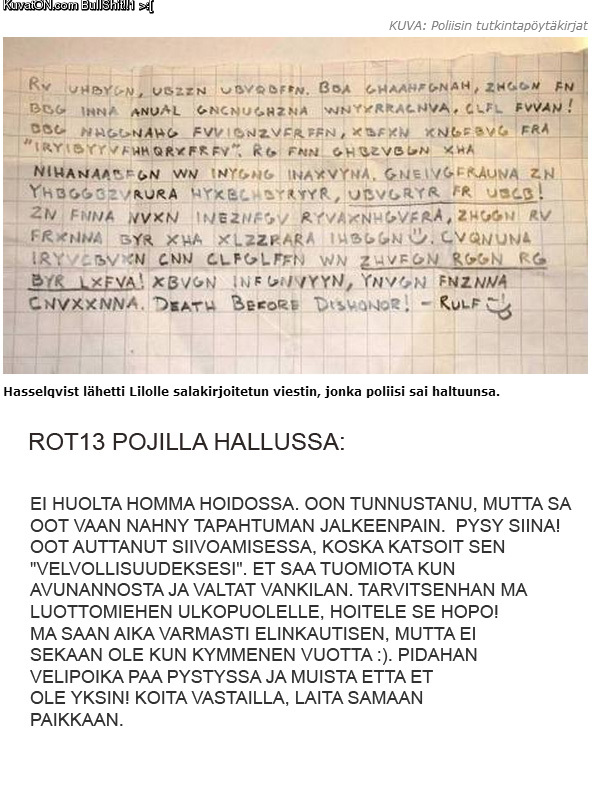 KuvatON.com BullShit!1 >:[
KUVA: Poliisin tutkintapöytäkirjat
RV UHBYGN, UBZZN UBVQBFFN. BBA GHAAHFGNAH, ZHGGN FN
BBG INNA ANUAL GNCNUGHZNA WNYXRRACNVA. CLFL FVVAN!
BBG NHGGNAHG FVVIBNZVFRFFN, XBFXN XNGFBVG FRA
"IRYIBYYVFHHQRXFRFV". RG FNN GHBZVBGN XHA
NIHANAABFGN WN INYGNG INAXVYNA. GNEIVGFRAUNA ZN
YHBGGBZVRURA HYXBCHBYRYYR, UBVGRYR FR UBCB!
ZN FNNA NVXN INEZNFGV RYVAXNHGVFRA, ZHGGN RV
FRXNNA BYR XHA XLZZRARA IHBGGN. CVQNUNA
IRYVCBVXN CNN CLFGLFFN WN ZHVFGN RGGN RG
BYR LXFVA! XBVGN INFGNVYYN, YNVGN FNZNNA
CNVXXNNA. DEATH BEFORE DISHONOR! - RULF
Hasselqvist lähetti Lilolle salakirjoitetun viestin, jonka poliisi sai haltuunsa.
ROT13 POJILLA HALLUSSA:
EI HUOLTA HOMMA HOIDOSSA. OON TUNNUSTANU, MUTTA SA
OOT VAAN NAHNY TAPAHTUMAN JALKEENPAIN. PYSY SIINA!
OOT AUTTANUT SIIVOAMISESSA, KOSKA KATSOIT SEN
"VELVOLLISUUDEKSESI". ET SAA TUOMIOTA KUN
AVUNANNOSTA JA VALTAT VANKILAN. TARVITSENHAN MA
LUOTTOMIEHEN ULKOPUOLELLE, HOITELE SE HOPO!
MA SAAN AIKA VARMASTI ELINKAUTISEN, MUTTA EI
SEKAAN OLE KUN KYMMENEN VUOTTA :). PIDAHAN
VELIPOIKA PAA PYSTYSSA JA MUISTA ETTA ET
OLE YKSIN! KOITA VASTAILLA, LAITA SAMAAN
PAIKKAAN.